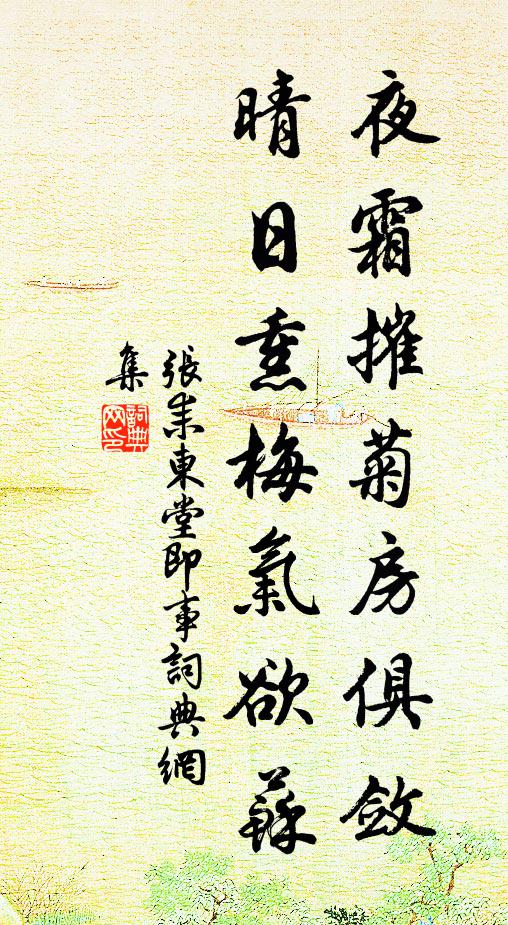 夜霜摧菊房俱斂
晴日熏梅氣欲蘇
張耒東堂即事詞典網
集
詞典
网印